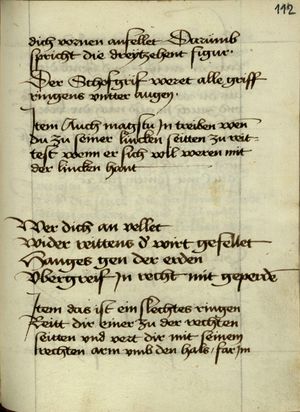 112
dich vornen anfellet Darumb
spricht die dreytzehent figur·
Der Schofgrif weret alle griff
ringens vntter augen·
Item Auch magstu In treiben wen
du zu seiner lincken seitten zu reit-
test wenn er sich will weren mit
der lincken hant
Wer dich an vellet
Wider rittens d' wirt gefellet
Hanges gen der erden
Vbergreif In recht mit geperde
Item das ist ein slechtes ringen
Reitt dir einer zu der rechten
seitten und vert dir mit seinem
rechten arm vmb den hals / far Im